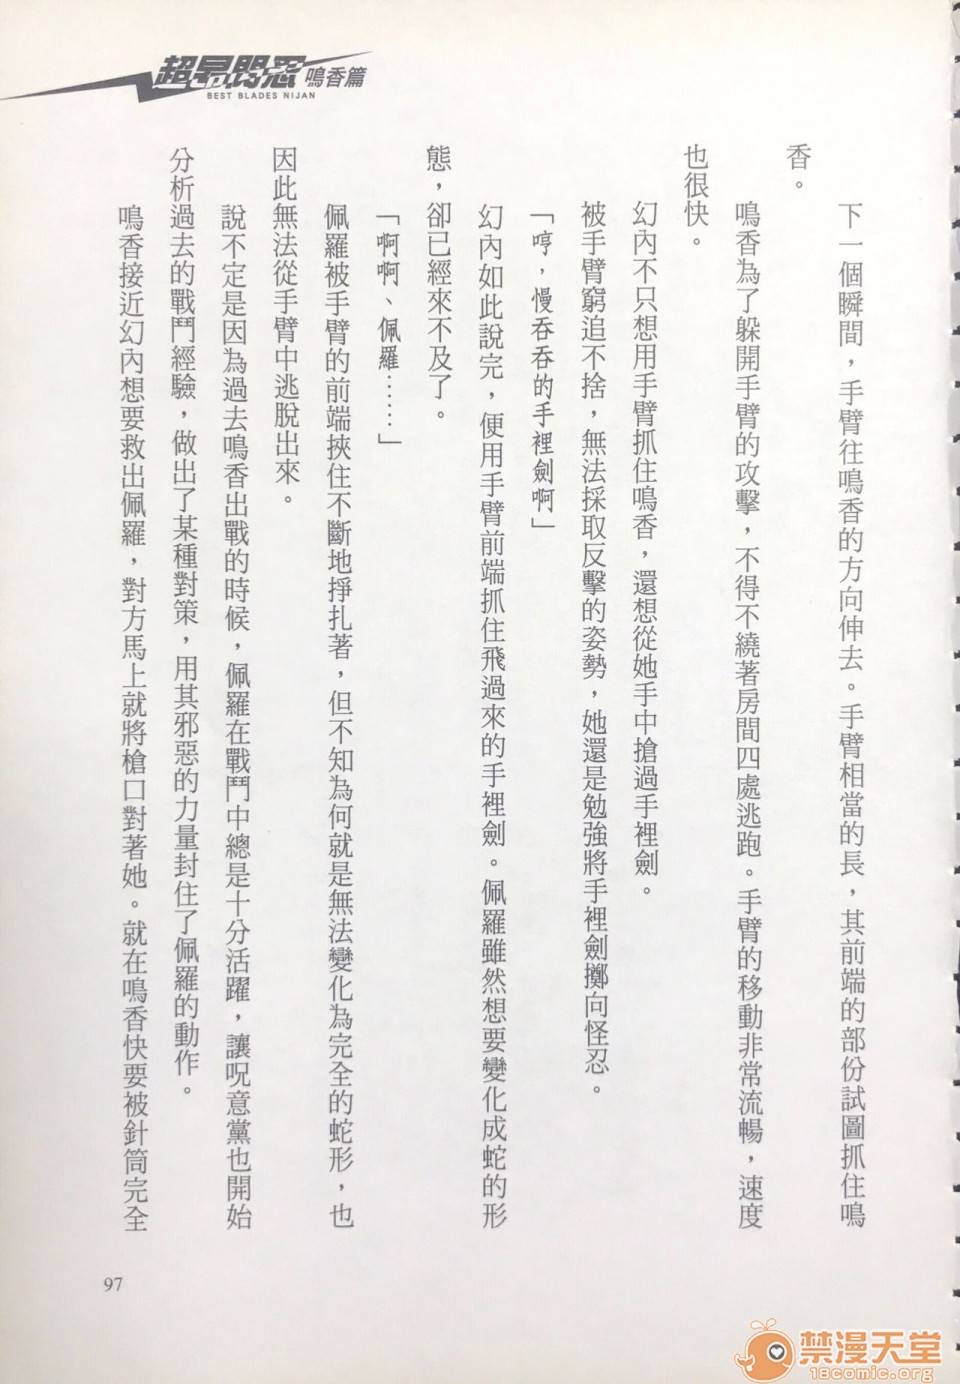 超昂閃忍 鳴香篇
BEST BLADES NIJAN
下一個瞬間，手臂往鳴香的方向伸去。手臂相當的長，其前端的部份試圖抓住鳴
香。
鳴香為了躲開手臂的攻擊，不得不繞著房間四處逃跑。手臂的移動非常流暢，速度
也很快。
幻內不只想用手臂抓住鳴香，還想從她手中搶過手裡劍。
被手臂窮追不捨，無法採取反擊的姿勢，她還是勉強將手裡劍擲向怪忍。
「哼，慢吞吞的手裡劍啊」
幻內如此說完，便用手臂前端抓住飛過來的手裡劍。佩羅雖然想要變化成蛇的形
態，卻已經來不及了。
「啊啊、佩羅……」
佩羅被手臂的前端挾住不斷地掙扎著，但不知為何就是無法變化為完全的蛇形，也
因此無法從手臂中逃脫出來。
說不定是因為過去鳴香出戰的時候，佩羅在戰鬥中總是十分活躍，讓呪意黨也開始
分析過去的戰鬥經驗，做出了某種對策，用其邪惡的力量封住了佩羅的動作。
鳴香接近幻內想要救出佩羅，對方馬上就將槍口對著她。就在鳴香快要被針筒完全
97
禁漫天堂
18comic.org